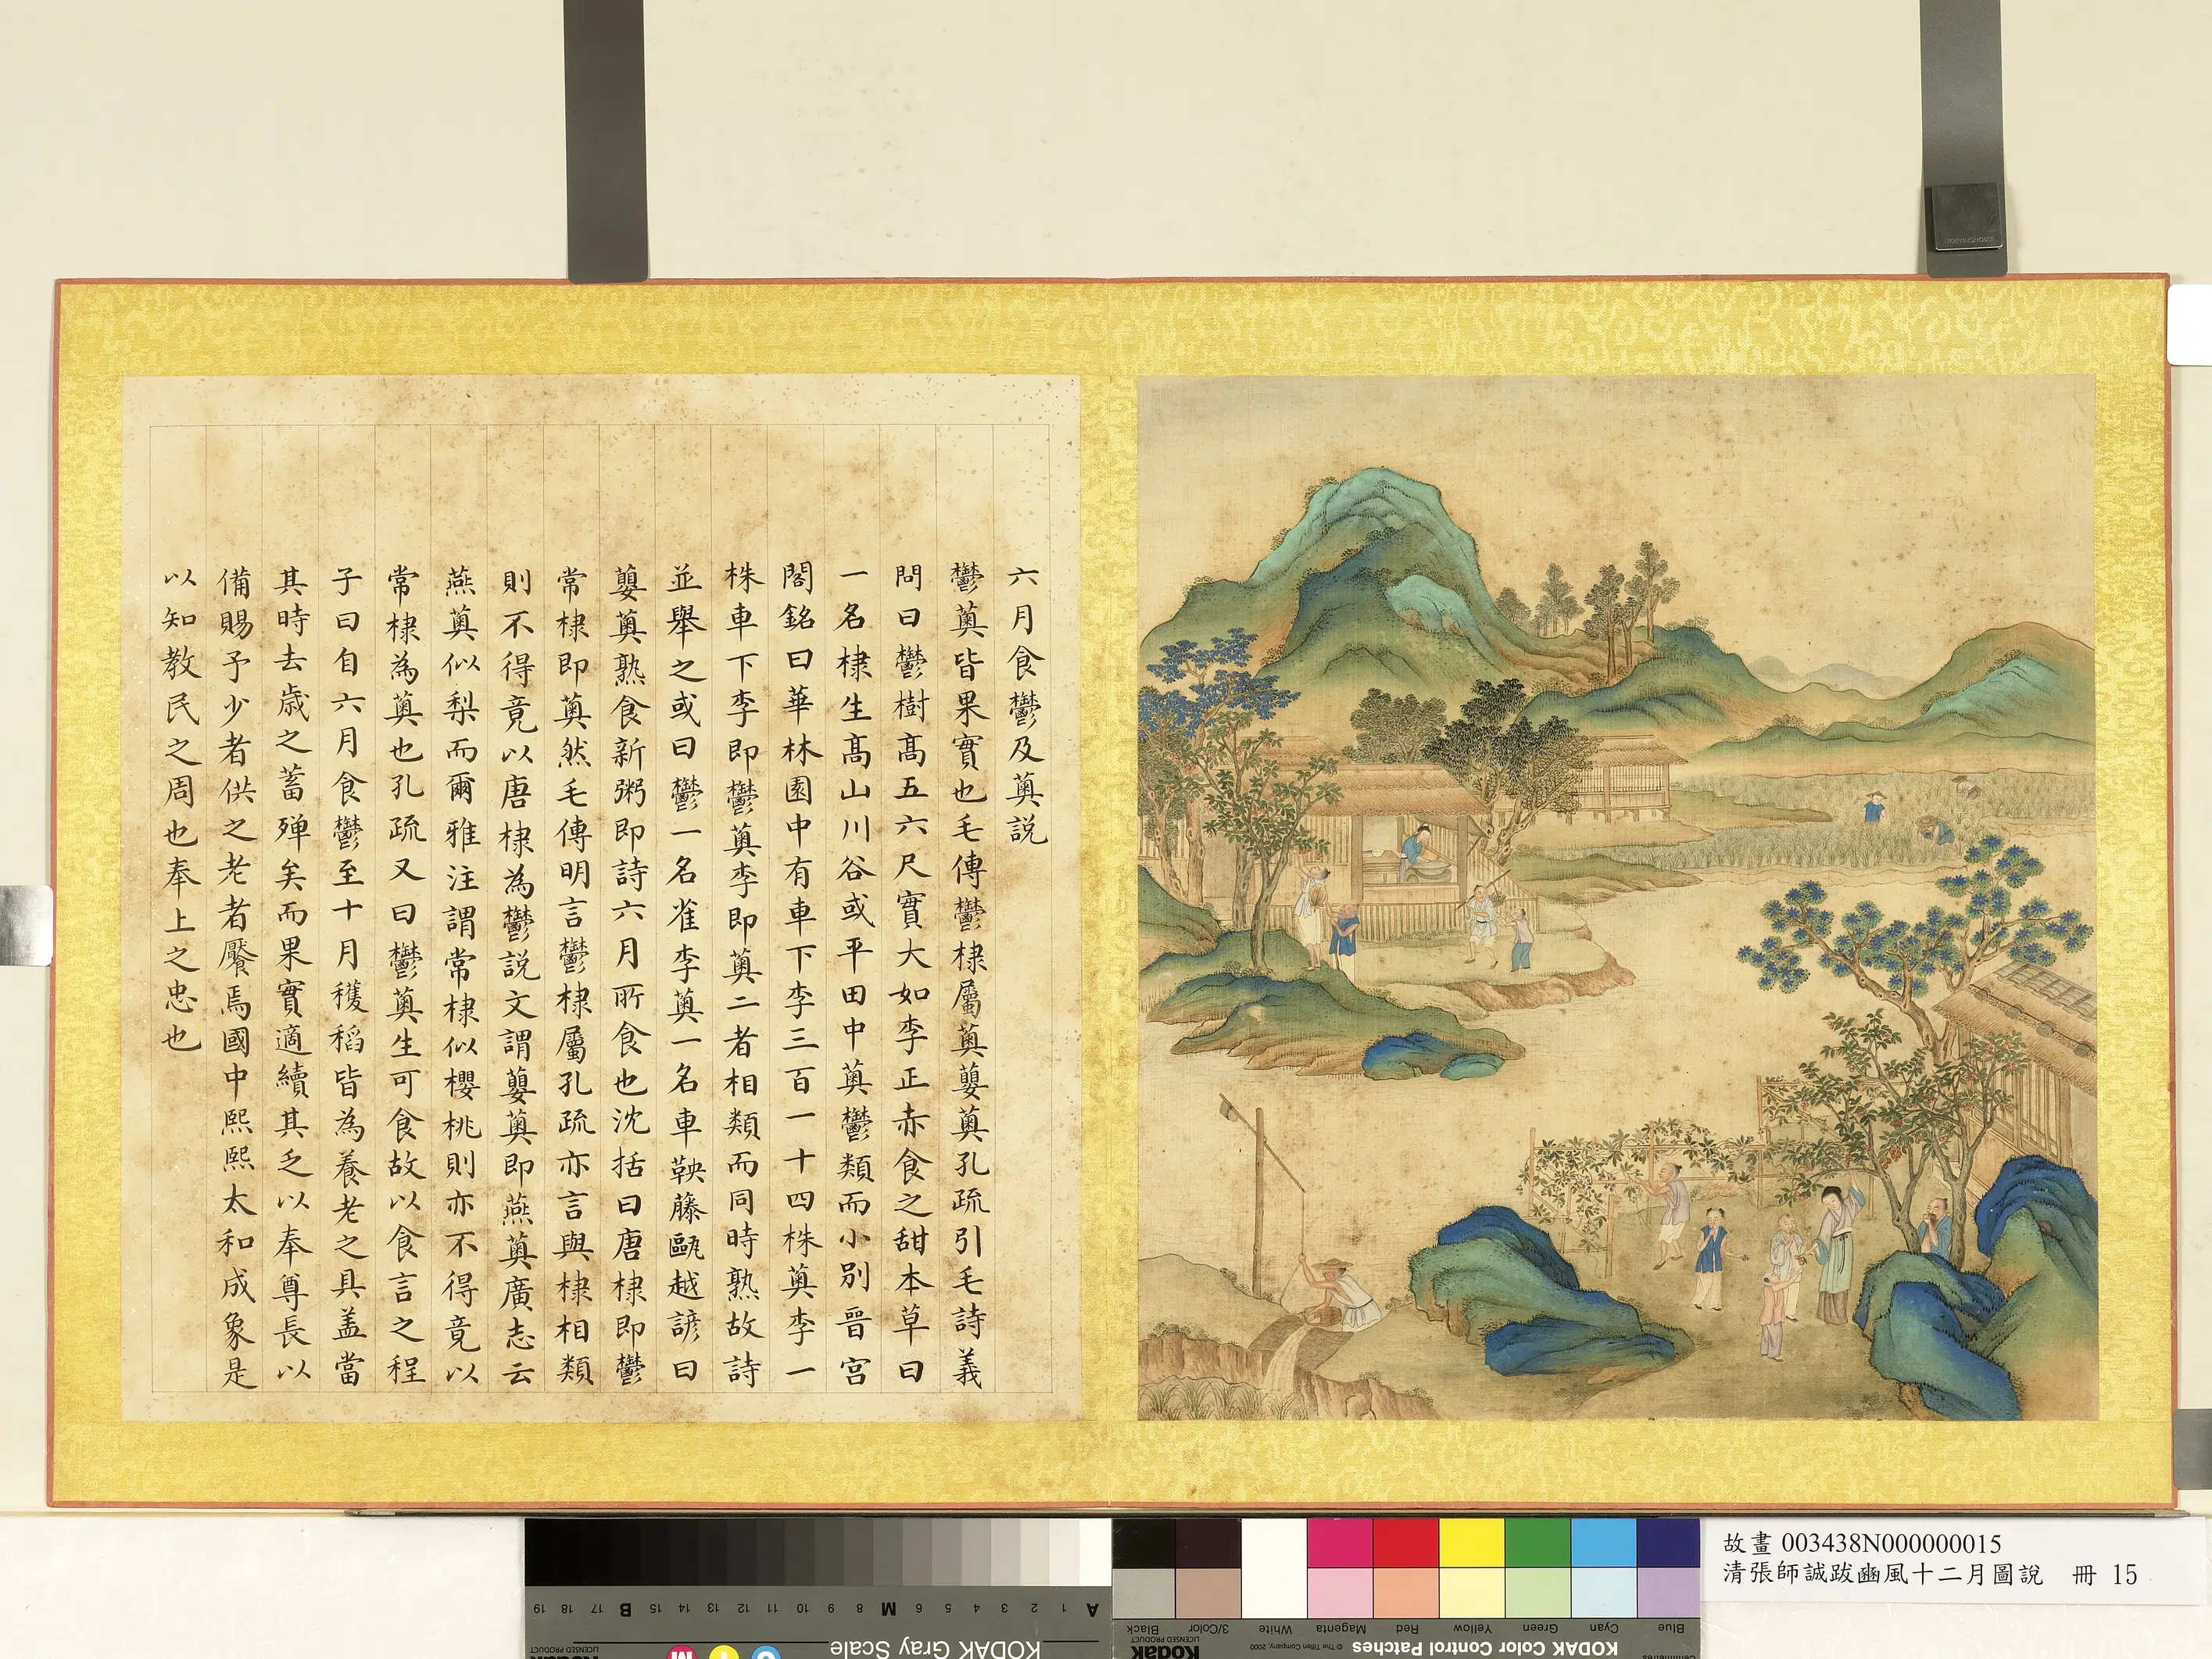 六月食鬱及薁説
鬱薁皆果實也毛傳鬱棣屬薁蘡薁孔疏引毛詩義
問曰鬱樹髙五六尺實大如李正赤食之甜本草曰
一名棣生髙山川谷或平田中薁鬱類而小別晉宫
閣銘曰華林園中有車下李三百一十四株薁李一
株車下李即鬱薁李即薁二者相類而同時熟故詩
並舉之或曰鬱一名雀李薁一名車鞅藤甌越諺曰
蘡薁熟食新粥即詩六月所食也沈括曰唐棣即鬱
常棣即薁然毛傳明言鬱棣屬孔疏亦言與棣相類
則不得竟以唐棣為鬱説文謂蘡薁即燕薁廣志云
燕薁似梨而爾雅注謂常棣似櫻桃則亦不得竟以
常棣為薁也孔疏又曰鬱薁生可食故以食言之程
子曰自六月食鬱至十月穫稻皆為養老之具盖當
其時去歲之蓄殫矣而果實適續其乏以奉尊長以
備賜予少者供之老者饜焉國中熙熙太和成象是
以知教民之周也奉上之忠也
故畫 003438N000000015
清張師誠跋豳風十二月圖說 冊 15
KODAK Gray Scale
A 1 2 3 4 5 6 M 8 9 10 11 12 13 14 15 B 17 18 19
KODAK Color Control Patches
© The Tiffen Company, 2000
Kodak
LICENSED PRODUCT
Blue Cyan Green Yellow Red Magenta White 3/Color Black